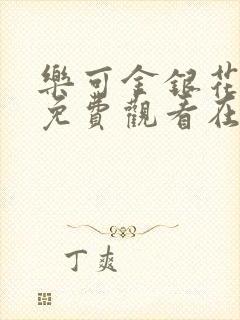 樂可金銀花
免費觀看在
丁爽